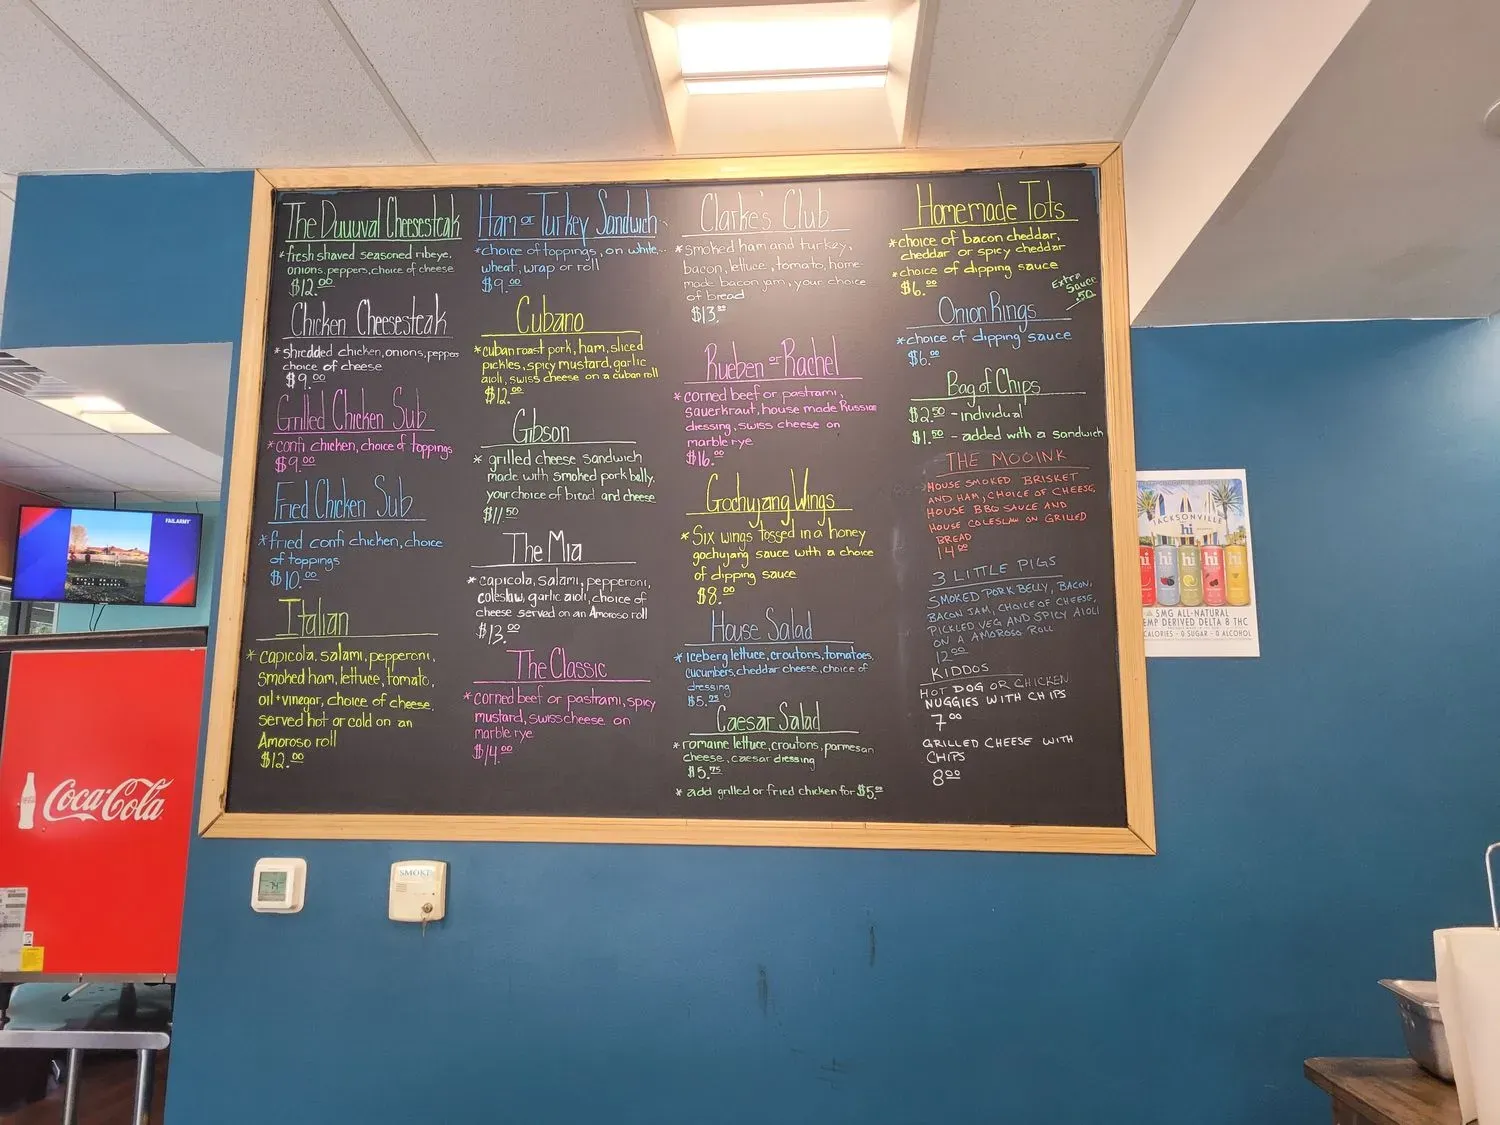 The Duuuval Cheesesteak
*fresh shaved seasoned ribeye,
onions, peppers, choice of cheese
$12.00
Chicken Cheesesteak
*shredded chicken, onions, peppers
choice of cheese
$9.00
Grilled Chicken Sub
*confi chicken, choice of toppings
$9.00
Fried Chicken Sub
*fried confi chicken, choice
of toppings
$10.00
Italian
*capicola, salami, pepperoni,
smoked ham, lettuce, tomato,
oil+vinegar, choice of cheese,
served hot or cold on an
Amoroso roll
$12.00
Ham or Turkey Sandwich
*choice of toppings, on white,
wheat, wrap or roll
$9.00
Cubano
*cuban roast pork, ham, sliced
pickles, spicy mustard, garlic
aioli, swiss cheese on a cuban roll
$12.00
Gibson
* grilled cheese sandwich
made with smoked pork belly,
your choice of bread and cheese
$11.50
The Mia
*capicola, salami, pepperoni,
coleslaw, garlic aioli, choice of
cheese served on an Amoroso roll
$13.00
The Classic
*corned beef or pastrami, spicy
mustard, swiss cheese on
marble rye
$14.00
Clarke's Club
*smoked ham and turkey,
bacon, lettuce, tomato, home-
made bacon jam, your choice
of bread
$13.00
Rueben or Rachel
*corned beef or pastrami,
sauerkraut, house made Russian
dressing, swiss cheese on
marble rye
$16.00
Gochujang Wings
*Six wings tossed in a honey
gochujang sauce with a choice
of dipping sauce
$8.00
House Salad
*iceberg lettuce, croutons, tomatoes,
cucumbers, cheddar cheese, choice of
dressing
$5.25
Caesar Salad
*romaine lettuce, croutons, parmesan
cheese, caesar dressing
$5.75
* add grilled or fried chicken for $5.00
Homemade Tots
*choice of bacon cheddar,
cheddar or spicy cheddar
*choice of dipping sauce
$6.00
Extra
Sauce
.50
Onion Rings
*choice of dipping sauce
$6.00
Bag of Chips
$2.50 - individual
$1.50 - added with a sandwich
THE MOOINK
HOUSE SMOKED BRISKET
AND HAM, CHOICE OF CHEESE,
HOUSE BBQ SAUCE AND
HOUSE COLESLAW ON GRILLED
BREAD
14.00
3 LITTLE PIGS
SMOKED PORK BELLY, BACON,
BACON JAM, CHOICE OF CHEESE,
PICKLED VEG AND SPICY AIOLI
ON A AMOROSO ROLL
12.00
KIDDOS
HOT DOG OR CHICKEN
NUGGIES WITH CHIPS
7.00
GRILLED CHEESE WITH
CHIPS
8.00
FAILARMY
Coca-Cola
74
SMOKE
JACKSONVILLE
hi
hi hi hi hi hi
5MG ALL-NATURAL
EMP DERIVED DELTA 8 THC
CALORIES - 0 SUGAR - 0 ALCOHOL